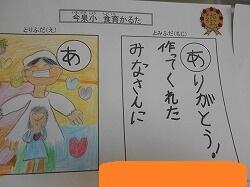 今泉小 食育かるた
とりふだ(え)
よみふだ(もじ)
あ
ありがとう!
作ってくれた
みなさんに